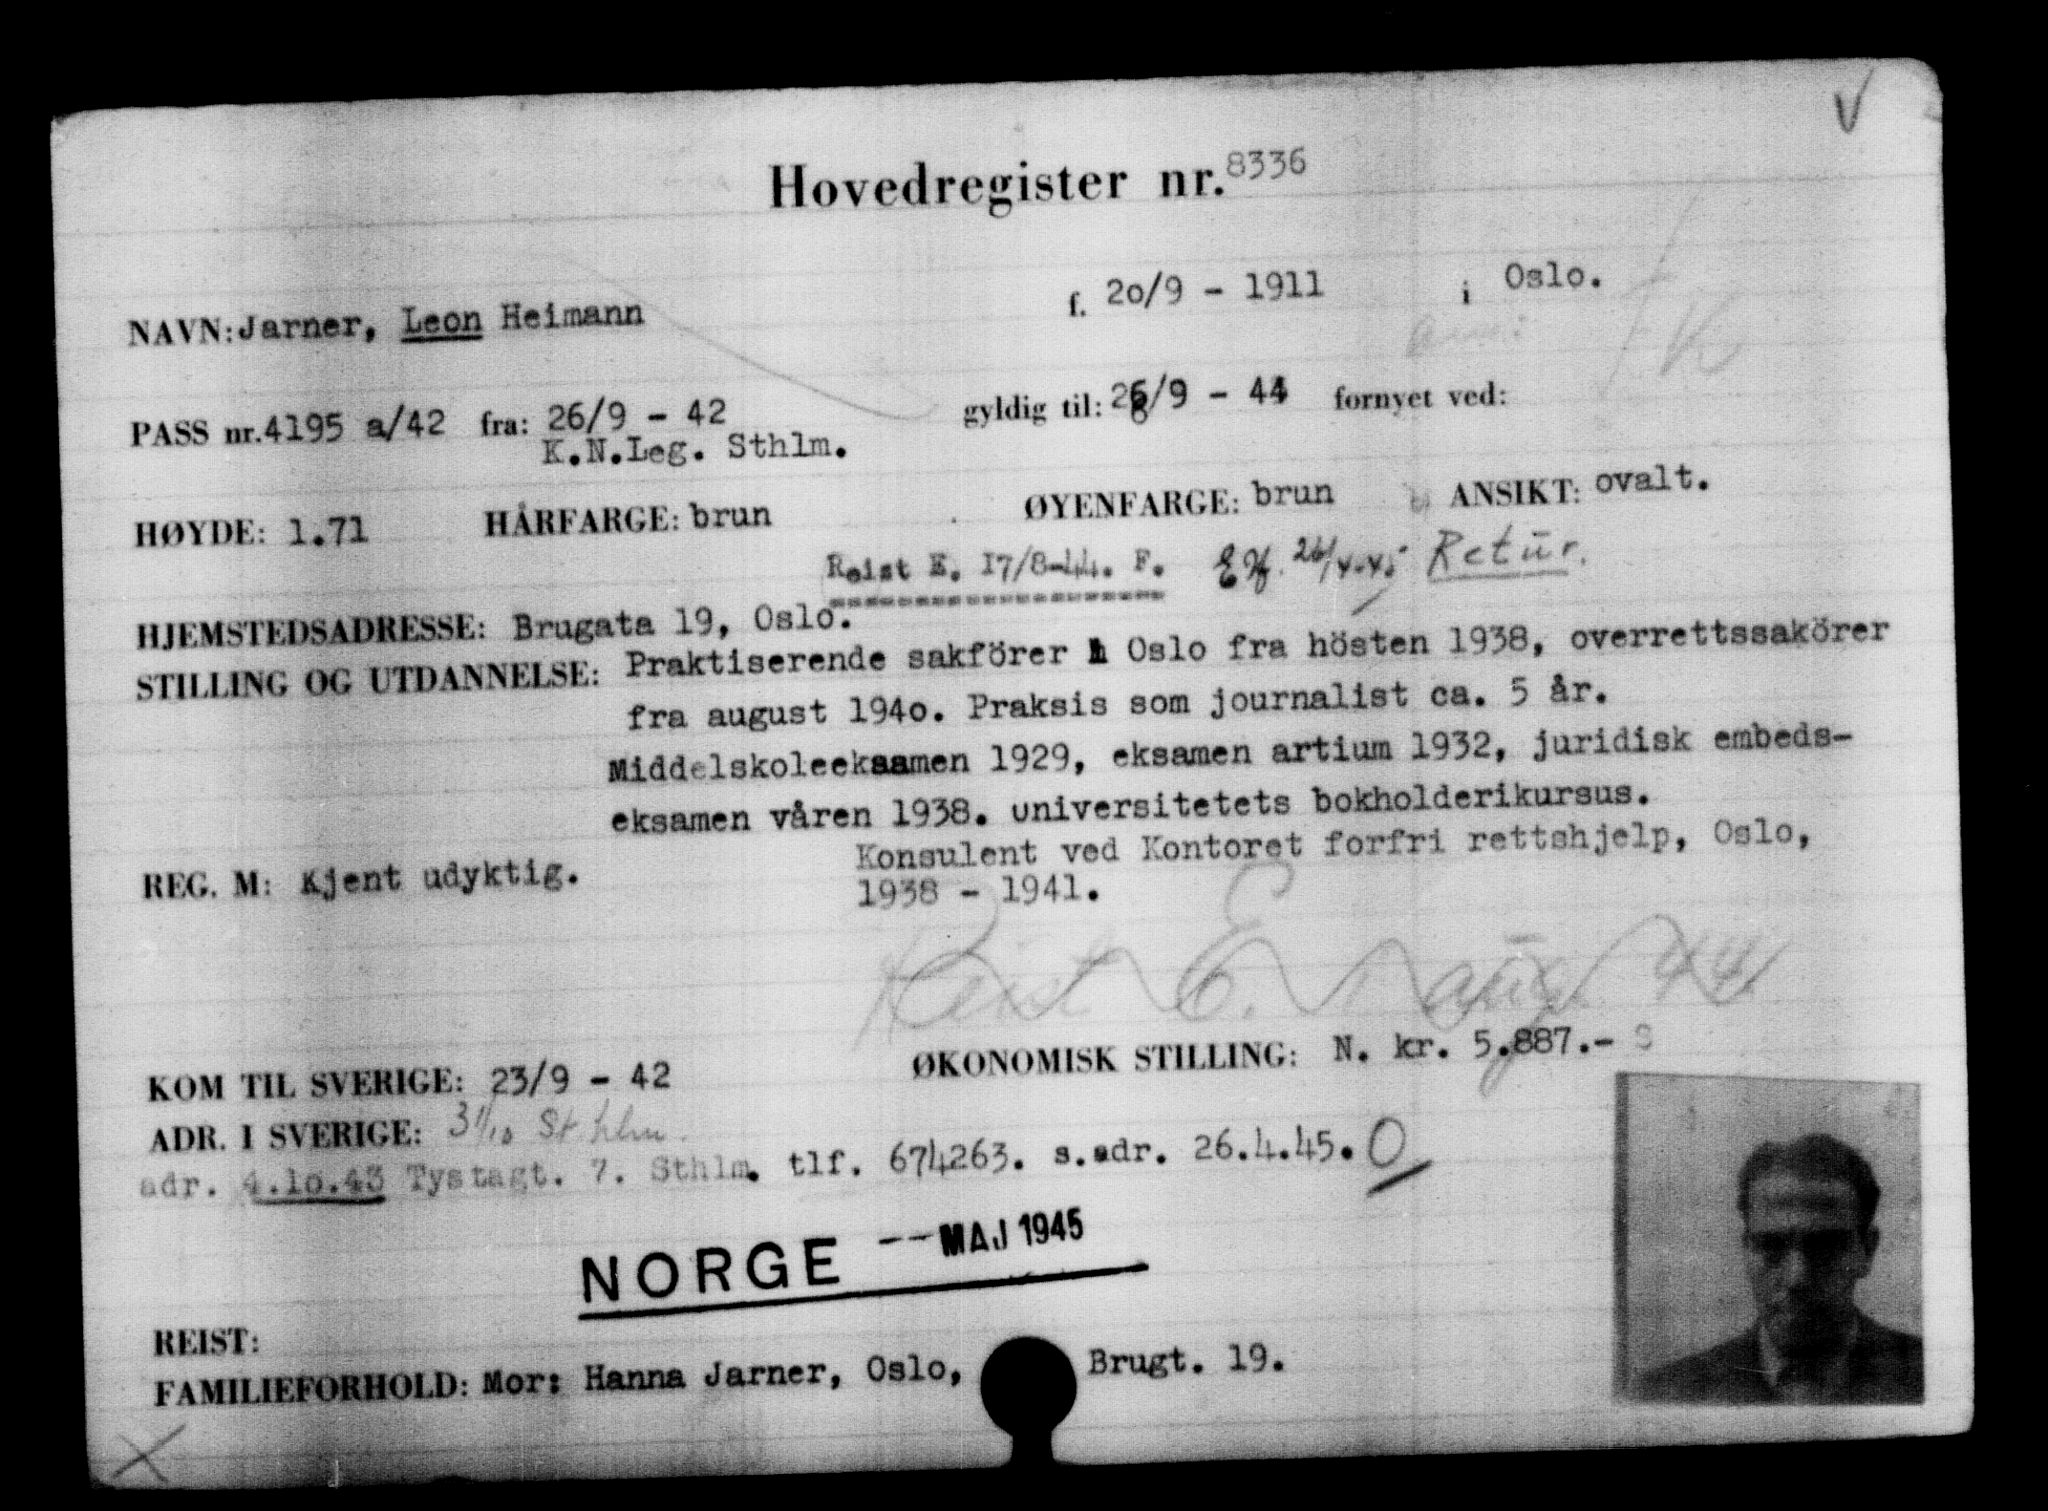 Hovedregister nr. 8336
NAVN: Jarner, Leon Heimann f. 2o/9 - 1911 i Oslo.
PASS nr. 4195 a/42 fra: 26/9 - 42 gyldig til: 26/9 - 44 fornyet ved:
K.N.Leg. Sthlm.
HØYDE: 1.71 HÅRFARGE: brun ØYENFARGE: brun ANSIKT: ovalt.
Reist E. 17/8-44. F. 26/4-45 Retur.
HJEMSTEDSADRESSE: Brugata 19, Oslo.
STILLING OG UTDANNELSE: Praktiserende sakförer i Oslo fra hösten 1938, overrettssakörer
fra august 194o. Praksis som journalist ca. 5 år.
Middelskoleeksamen 1929, eksamen artium 1932, juridisk embeds-
eksamen våren 1938. universitetets bokholderikursus.
Konsulent ved Kontoret forfri rettshjelp, Oslo,
REG. M: Kjent udyktig. 1938 - 1941.
Reist E. aug. 44
KOM TIL SVERIGE: 23/9 - 42 ØKONOMISK STILLING: N. kr. 5.887.-
ADR. I SVERIGE: 31/10 Sthlm.
adr. 4.1o.43 Tystagt. 7. Sthlm. tlf. 674263. s.adr. 26.4.45. O
NORGE -- MAJ 1945
REIST:
FAMILIEFORHOLD: Mor: Hanna Jarner, Oslo, Brugt. 19.